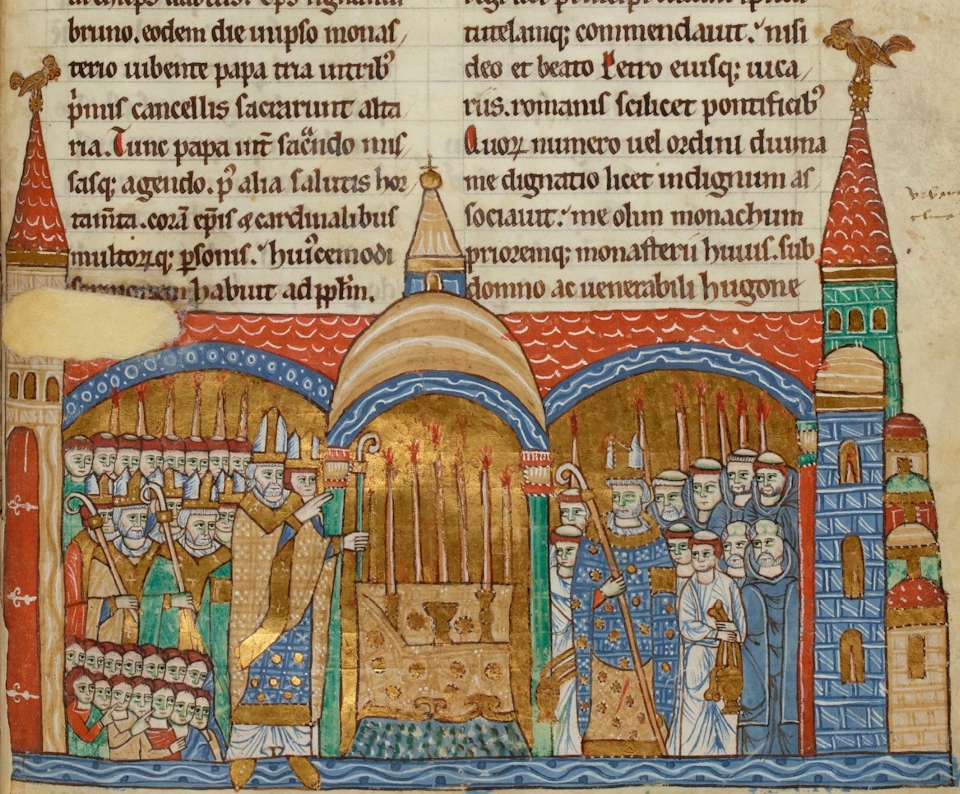 bruno. eodem die in ipso monas/
terio iubente papa tria in trib᾽
p̓mis cancellis sacrarunt alta
ria. Tunc papa int̄ sac̄ndo mis/
sasq; agendo. p᾽ alia salutis hor
tam̄ta. corā ep̄is ⁊ cardinalibus
multorꝝq; ꝑsonis.᾽ hui᾽cemodi
habuit ad pp̄lm.
tutelamq; commendauit.᾽ nisi
deo et beato Petro eiusq; uica/
riis. romanis scilicet pontificib᾽
Quorꝝ numero uel ordini diuina
me dignatio licet indignum as
sociauit.᾽ me olim monachum
prioremq; monasterii huius. sub
domno ac uenerabili hugone